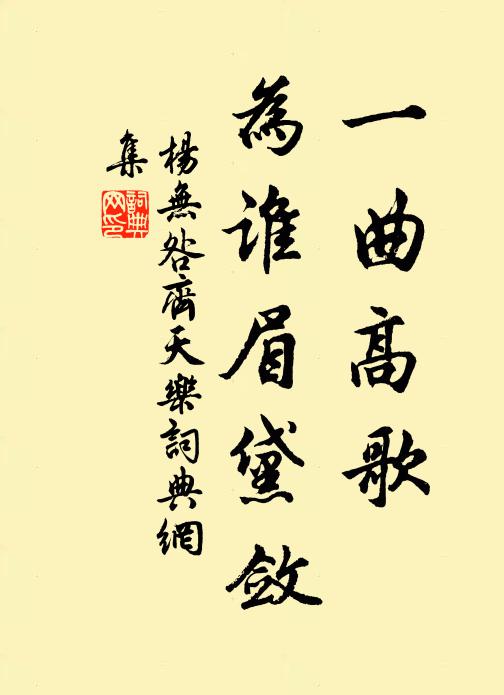 一曲高歌
為誰眉黛斂
楊無咎齊天樂詞典網
集
詞典網印